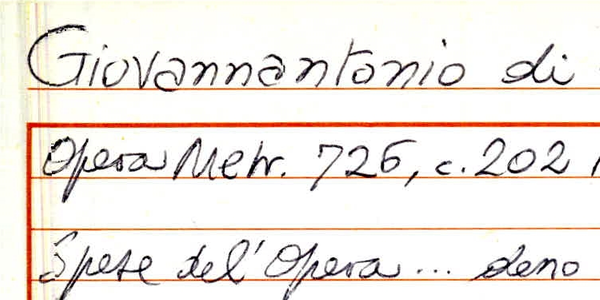 Giovannantonio di
Opera Metr. 726, c. 202
Spese del'Opera ... deno